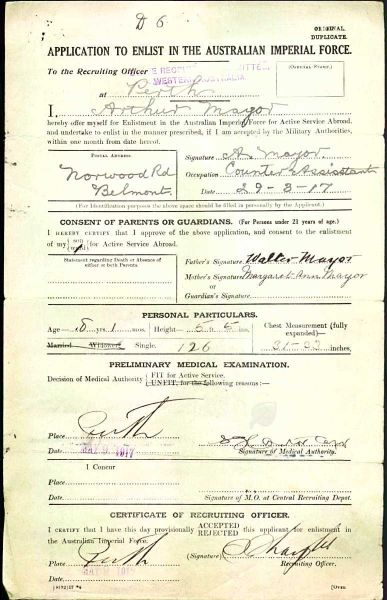 D 6
ORIGINAL.
DUPLICATE.
APPLICATION TO ENLIST IN THE AUSTRALIAN IMPERIAL FORCE.
To the Recruiting Officer
WESTERN AUSTRALIA.
(OFFICIAL STAMP.)
at Perth
I, Arthur Mayor
hereby offer myself for Enlistment in the Australian Imperial Force for Active Service Abroad,
and undertake to enlist in the manner prescribed, if I am accepted by the Military Authorities,
within one month from date hereof.
POSTAL ADDRESS
Norwood Rd
Belmont.
Signature A. Mayor
Occupation Counter Assistant
Date 29-3-17
(For Identification purposes the above space should be filled in personally by the Applicant.)
CONSENT OF PARENTS OR GUARDIANS. (For Persons under 21 years of age.)
I HEREBY CERTIFY that I approve of the above application, and consent to the enlistment
of my {son ward} for Active Service Abroad.
Statement regarding Death or Absence of
either or both Parents
Father's Signature Walter Mayor
Mother's Signature Margaret Ann Mayor
or
Guardian's Signature
PERSONAL PARTICULARS.
Age 18 yrs. 1 mos. Height 5 ft. 5 ins.
Chest Measurement (fully
expanded)—
Married. Widower. Single. 126
31-33 inches,
PRELIMINARY MEDICAL EXAMINATION.
Decision of Medical Authority {FIT for Active Service.
UNFIT, for the following reasons:—
Place Perth
Date 1917
Signature of Medical Authority.
I Concur
Place
Date
Signature of M.O. at Central Recruiting Depot.
CERTIFICATE OF RECRUITING OFFICER.
I CERTIFY that I have this day provisionally ACCEPTED REJECTED this applicant for enlistment in
the Australian Imperial Force.
Place Perth
Date
(Signature)
Recruiting Officer.
[OVER